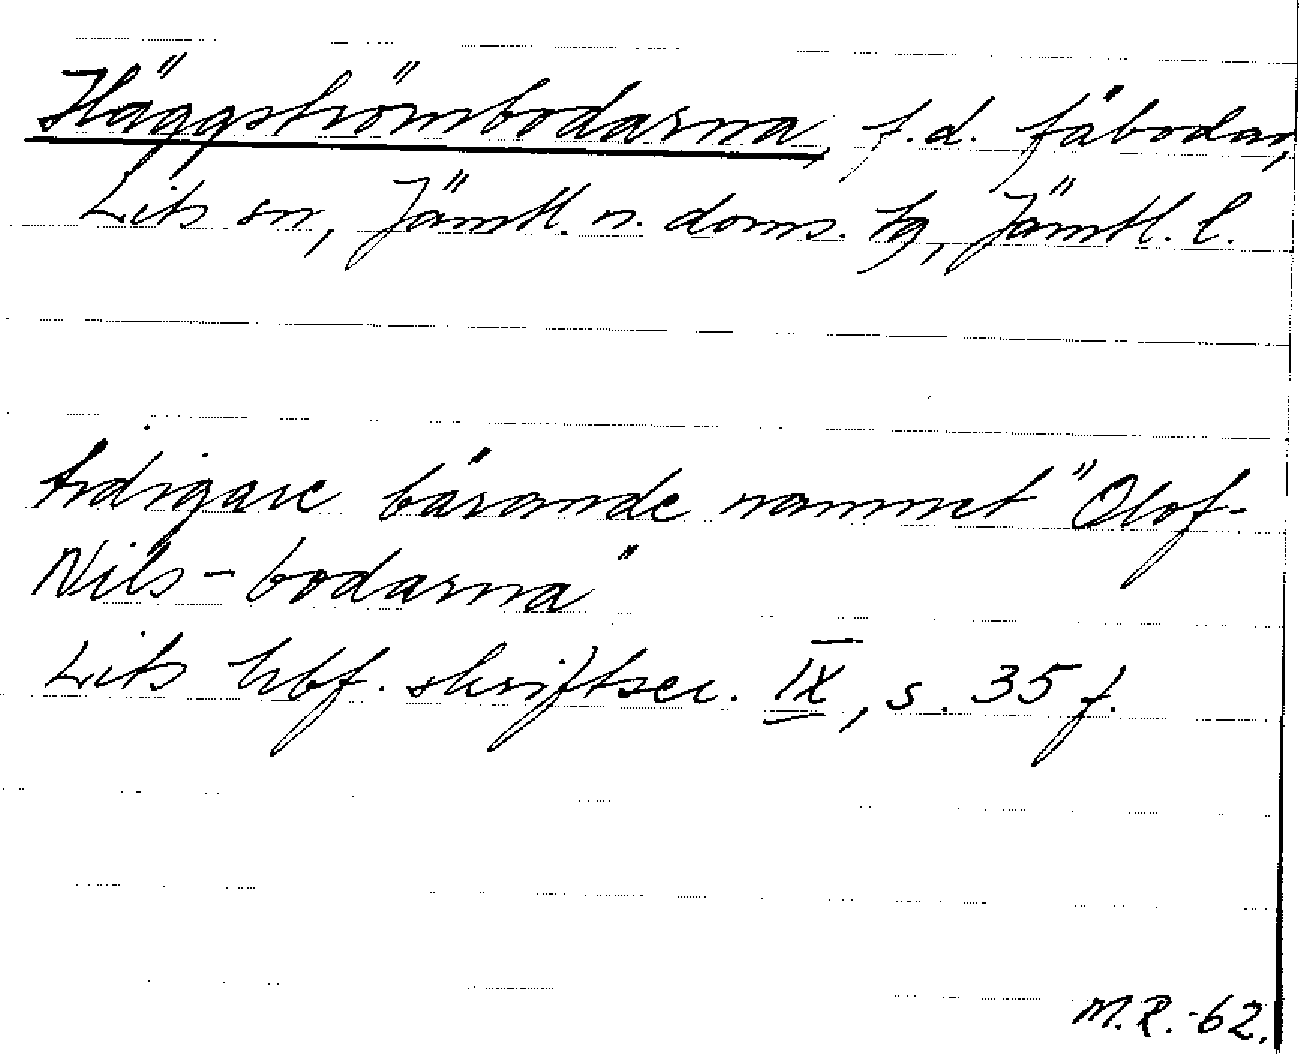 Häggströmbodarna, f.d. fäbodar,
Lits sn, Jämtl. n. doms. tg, Jämtl. l.
tidigare bärande namnet "Olof-
Nils-bodarna"
Lits hbf. skriftser. IX, s. 35 f.
M.R.-62.